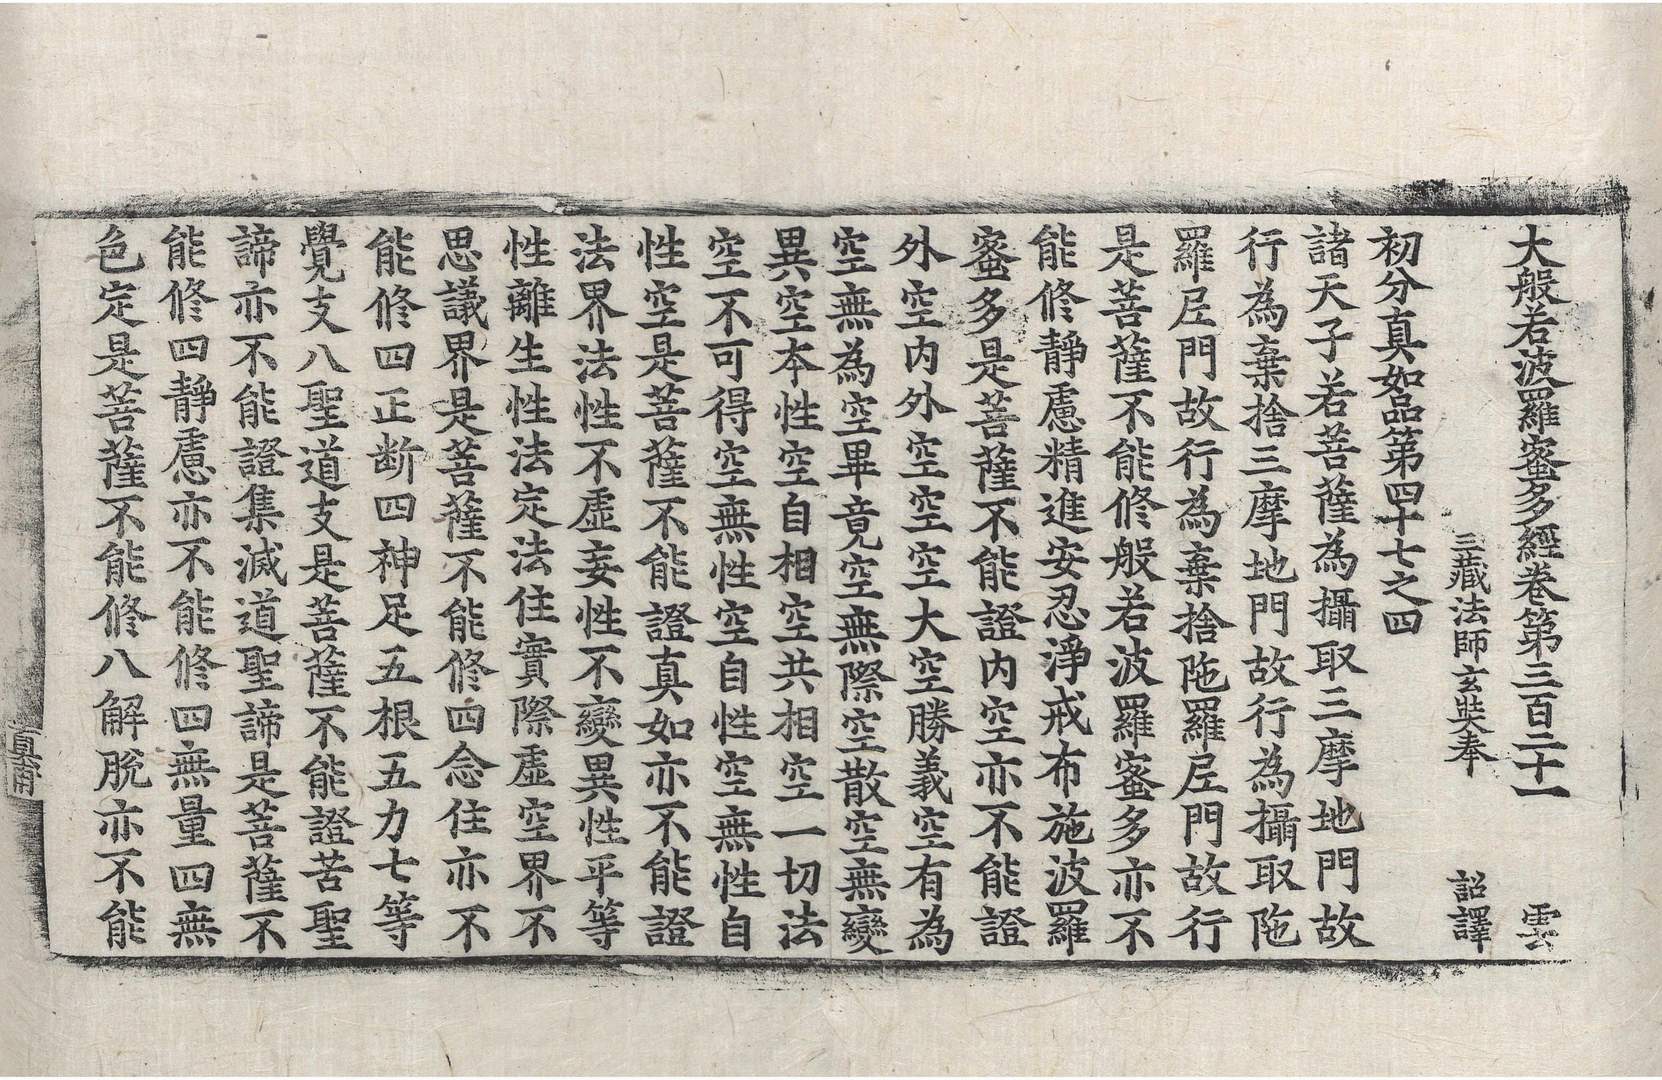 大般若波羅蜜多經卷第三百二十一 雲
三藏法師玄奘奉 詔譯
初分真如品第四十七之四
諸天子若菩薩為攝取三摩地門故
行為棄捨三摩地門故行為攝取陁
羅尼門故行為棄捨陁羅尼門故行
是菩薩不能修般若波羅蜜多亦不
能修靜慮精進安忍淨戒布施波羅
蜜多是菩薩不能證內空亦不能證
外空內外空空空大空勝義空有為
空無為空畢竟空無際空散空無變
異空本性空自相空共相空一切法
空不可得空無性空自性空無性自
性空是菩薩不能證真如亦不能證
法界法性不虛妄性不變異性平等
性離生性法定法住實際虛空界不
思議界是菩薩不能修四念住亦不
能修四正断四神足五根五力七等
覺支八聖道支是菩薩不能證苦聖
諦亦不能證集滅道聖諦是菩薩不
能修四靜慮亦不能修四無量四無
色定是菩薩不能修八解脫亦不能